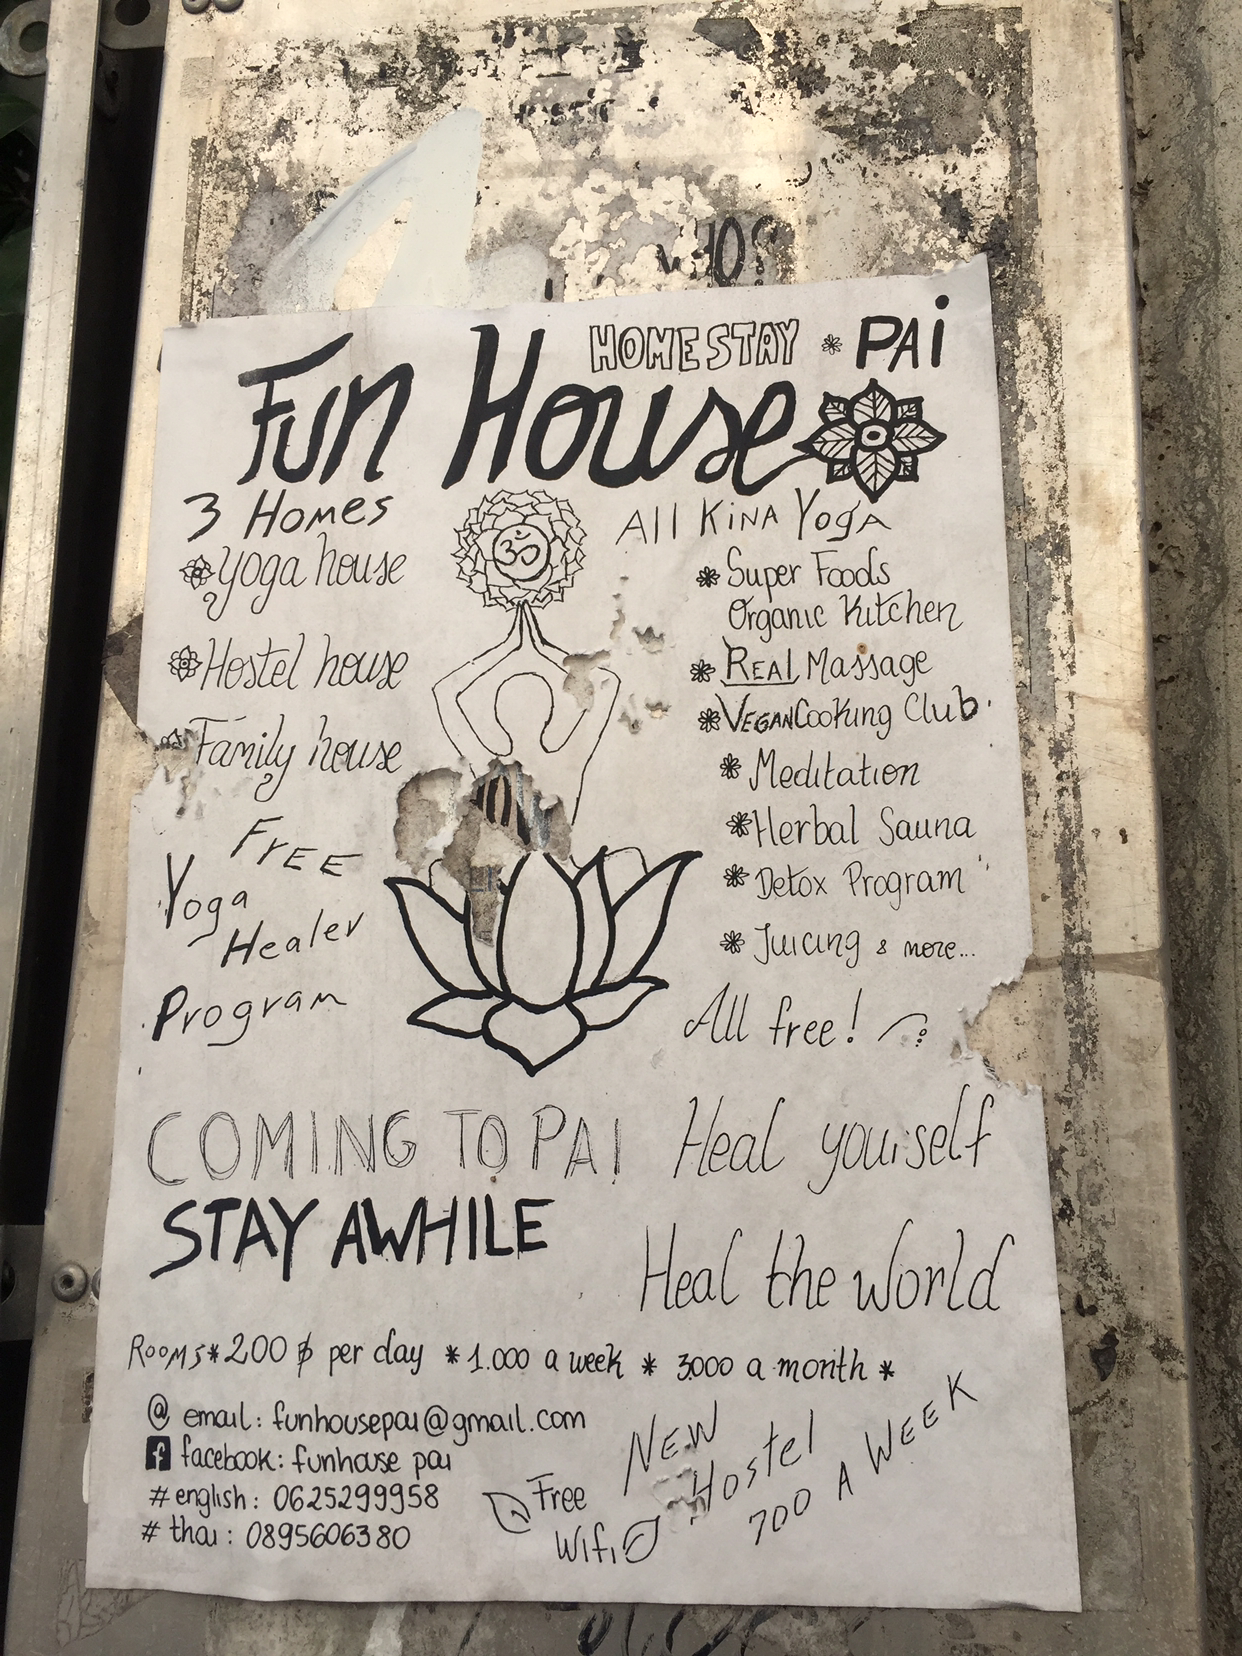 HOMESTAY * PAi
Fun House
3 Homes
Yoga house
Hostel house
Family house
FrEE
Yoga
Healer
Program
ॐ
All KiNA YogA
Super Foods
Organic Kitchen
REAL Massage
VEGAN Cooking Club
Meditation
Herbal Sauna
Detox Program
Juicing & more...
All free!
COMING TO PAI
STAY AWHILE
Heal yourself
Heal the World
ROOMS * 200 ฿ per day * 1.000 a week * 3000 a month *
@ email: funhousepai@gmail.com
f facebook: funhouse pai
# english: 0625299958
# thai: 0895606380
Free
Wifi
NEW
Hostel
700 A WEEK